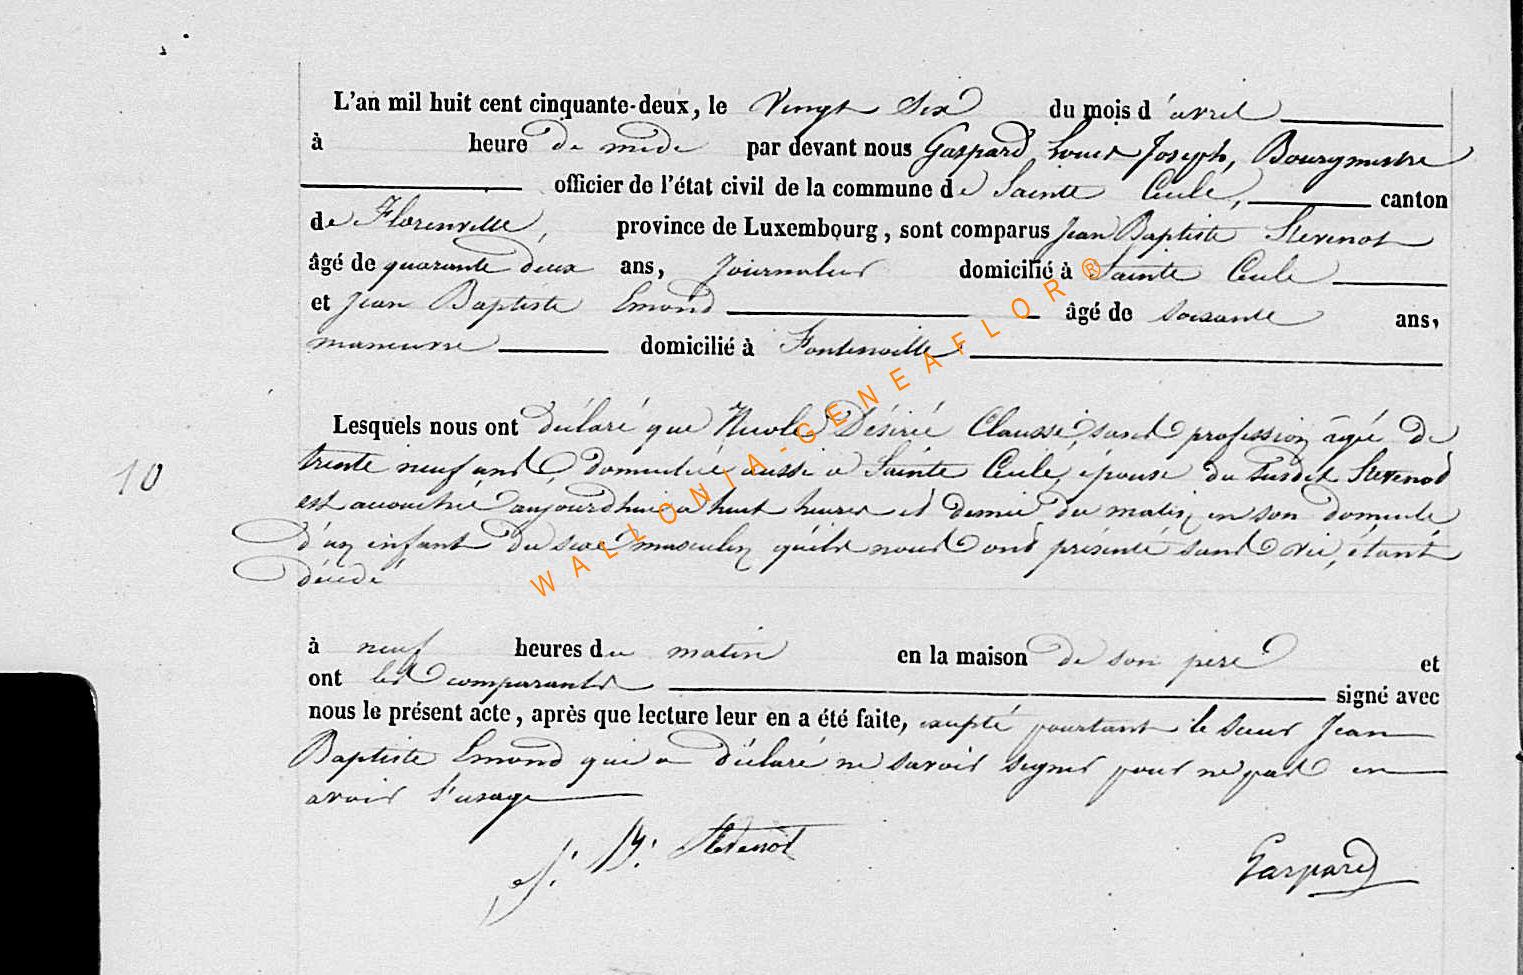 L'an mil huit cent cinquante-deux, le Vingt Six du mois d'avril
à heure de midi par devant nous Gaspard Louis Joseph, Bourgmestre
officier de l'état civil de la commune de Sainte Cecile, canton
de Florenville, province de Luxembourg, sont comparus Jean Baptiste Stevenot
âgé de quarante deux ans, Journalier domicilié à Sainte Cecile
et Jean Baptiste Emond âgé de soixante ans,
manœuvre domicilié à Fontenoille
Lesquels nous ont déclaré que Nicole Désirée Clausse, sans profession agée de
trente neuf ans, domiciliée aussi à Sainte Cecile, épouse du susdit Stevenot
est accouchée aujourd'hui a huit heures et demie du matin en son domicile
10
d'un enfant du sexe masculin qu'ils nous ont présenté sans vie, étant
décédé
à neuf heures du matin en la maison de son père et
ont les comparants signé avec
nous le présent acte, après que lecture leur en a été faite, excepté pourtant le sieur Jean
Baptiste Emond qui a déclaré ne savoir signer pour ne pas en
avoir l'usage
J. B. Stevenot
Gaspard
WALLONIA-GENEAFLOR®